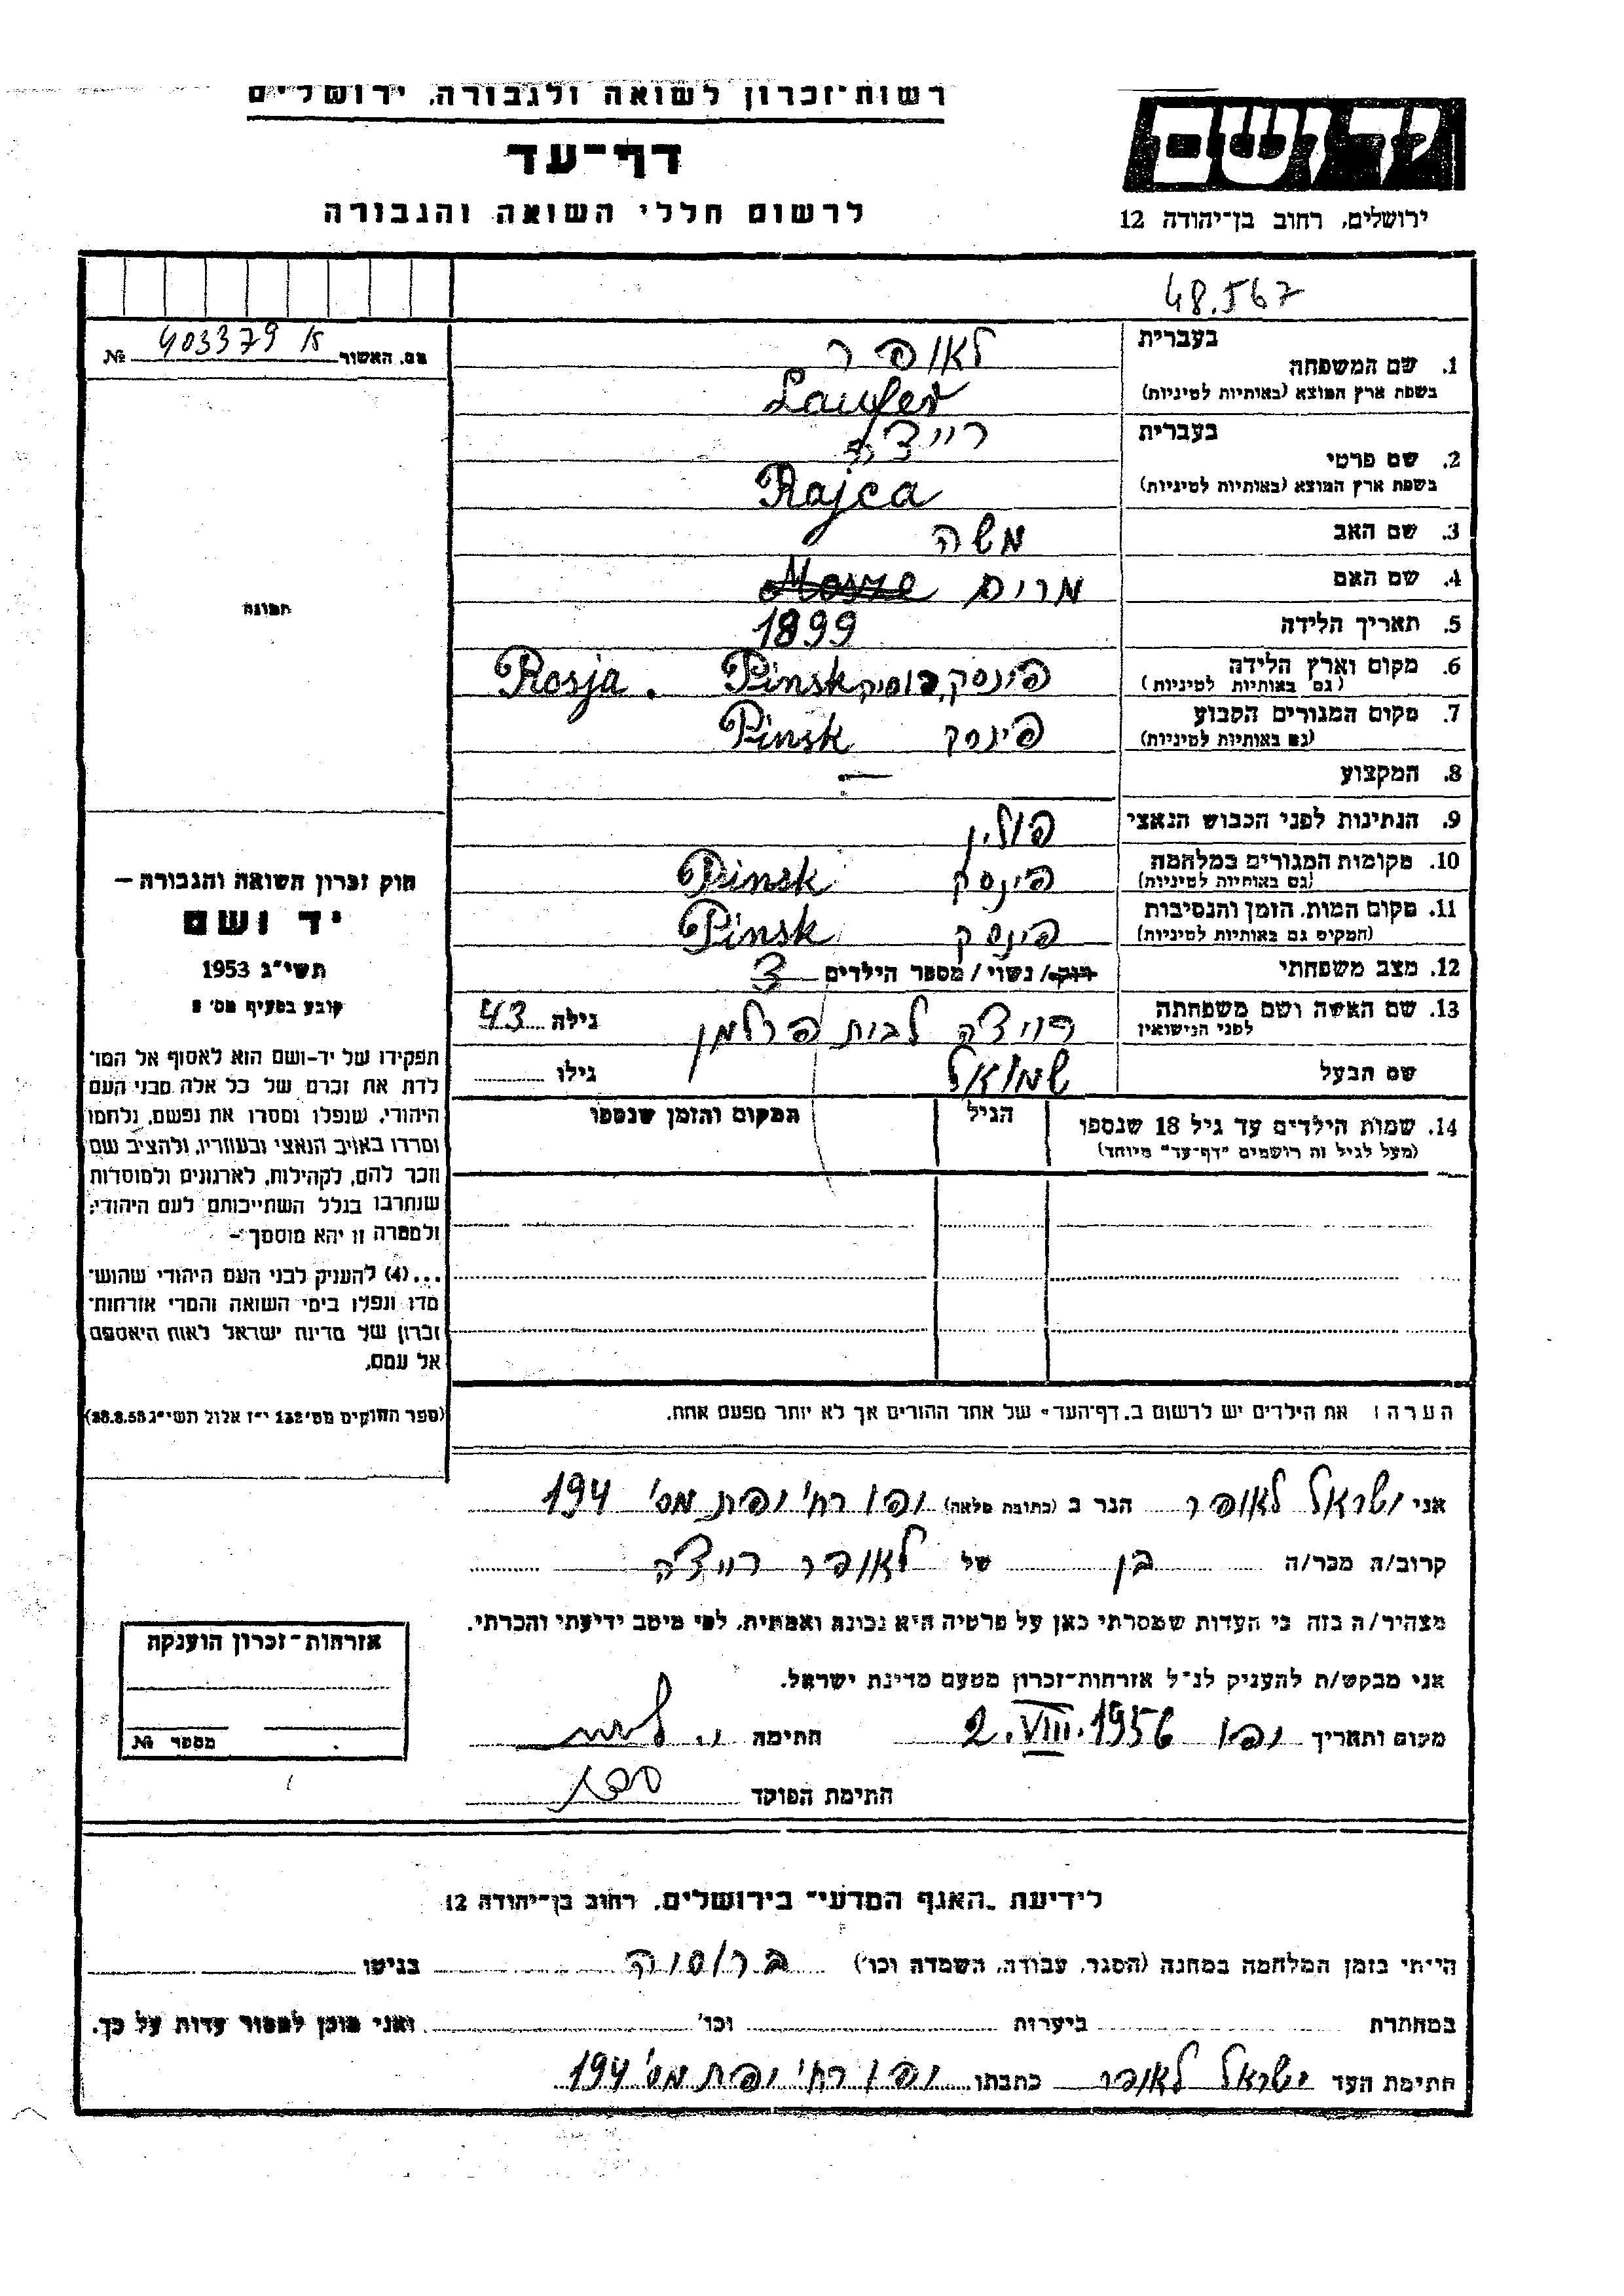 רשות־זכרון לשואה ולגבורה, ירושלים
דף־עד
לרשום חללי השואה והגבורה
יד ושם
ירושלים, רחוב בן־יהודה 12
48.567
מס. האשור 403379 א №
בעברית לאופר
1. שם המשפחה
בשפת ארץ המוצא (באותיות לטיניות) Laufer
בעברית רייצה
2. שם פרטי
בשפת ארץ המוצא (באותיות לטיניות) Rajca
3. שם האב משה
4. שם האם מרים Mosze
5. תאריך הלידה 1899
6. מקום וארץ הלידה פינסק, רוסיה Pinsk. Rosja
(גם באותיות לטיניות)
7. מקום המגורים הקבוע פינסק Pinsk
(גם באותיות לטיניות)
8. המקצוע —
9. הנתינות לפני הכבוש הנאצי פולין
10. מקומות המגורים במלחמה פינסק Pinsk
(גם באותיות לטיניות)
11. מקום המות, הזמן והנסיבות פינסק Pinsk
(המקום גם באותיות לטיניות)
12. מצב משפחתי רווק/ נשוי / מספר הילדים 3
13. שם האשה ושם משפחתה רייצה לבית פרלמן גילה 43
לפני הנישואין
שם הבעל שמואל גילו
14. שמות הילדים עד גיל 18 שנספו הגיל המקום והזמן שנספו
(מעל לגיל זה רושמים "דף־עד" מיוחד)
הערה: את הילדים יש לרשום ב"דף־העד" של אחד ההורים אך לא יותר מפעם אחת.
תמונה
חוק זכרון השואה והגבורה —
יד ושם
תשי"ג 1953
קובע בסעיף מס' 2
תפקידו של יד-ושם הוא לאסוף אל המו־
לדת את זכרם של כל אלה מבני העם
היהודי, שנפלו ומסרו את נפשם, נלחמו
ומרדו באויב הנאצי ובעוזריו, ולהציב שם
וזכר להם, לקהילות, לארגונים ולמוסדות
שנחרבו בגלל השתייכותם לעם היהודי;
ולמטרה זו יהא מוסמך –
...(4) להעניק לבני העם היהודי שהוש־
מדו ונפלו בימי השואה והמרי אזרחות־
זכרון של מדינת ישראל לאות היאספם
אל עמם.
(ספר החוקים מס' 132 י"ז אלול תשי"ג 28.8.53)
אני ישראל לאופר הגר ב (כתובת מלאה) יפו רח' יפת מס' 194
קרוב/ה מכר/ה בן של לאופר רייצה
מצהיר/ה בזה כי העדות שמסרתי כאן על פרטיה היא נכונה ואמתית, לפי מיטב ידיעתי והכרתי.
אני מבקש/ת להעניק לנ"ל אזרחות-זכרון מטעם מדינת ישראל.
מקום ותאריך יפו 2.VIII.1956 חתימה
חתימת הפוקד
אזרחות-זכרון הוענקה
מספר №
לידיעת "האגף המדעי" בירושלים, רחוב בן־יהודה 12
הייתי בזמן המלחמה במחנה (הסגר, עבודה, השמדה וכו') ברוסיה בגיטו
במחתרת ביערות וכו' ואני מוכן למסור עדות על כך.
חתימת העד ישראל לאופר כתבתו יפו רח' יפת מס' 194